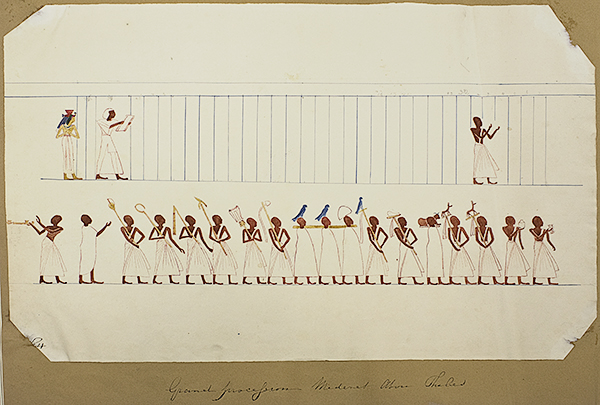 Grand procession Medinet Abou Thebes